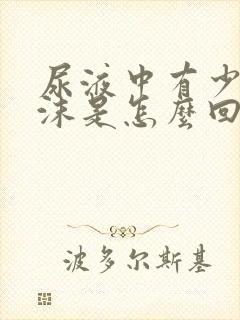 尿液中有少
沫是怎麼回
波多尔斯基